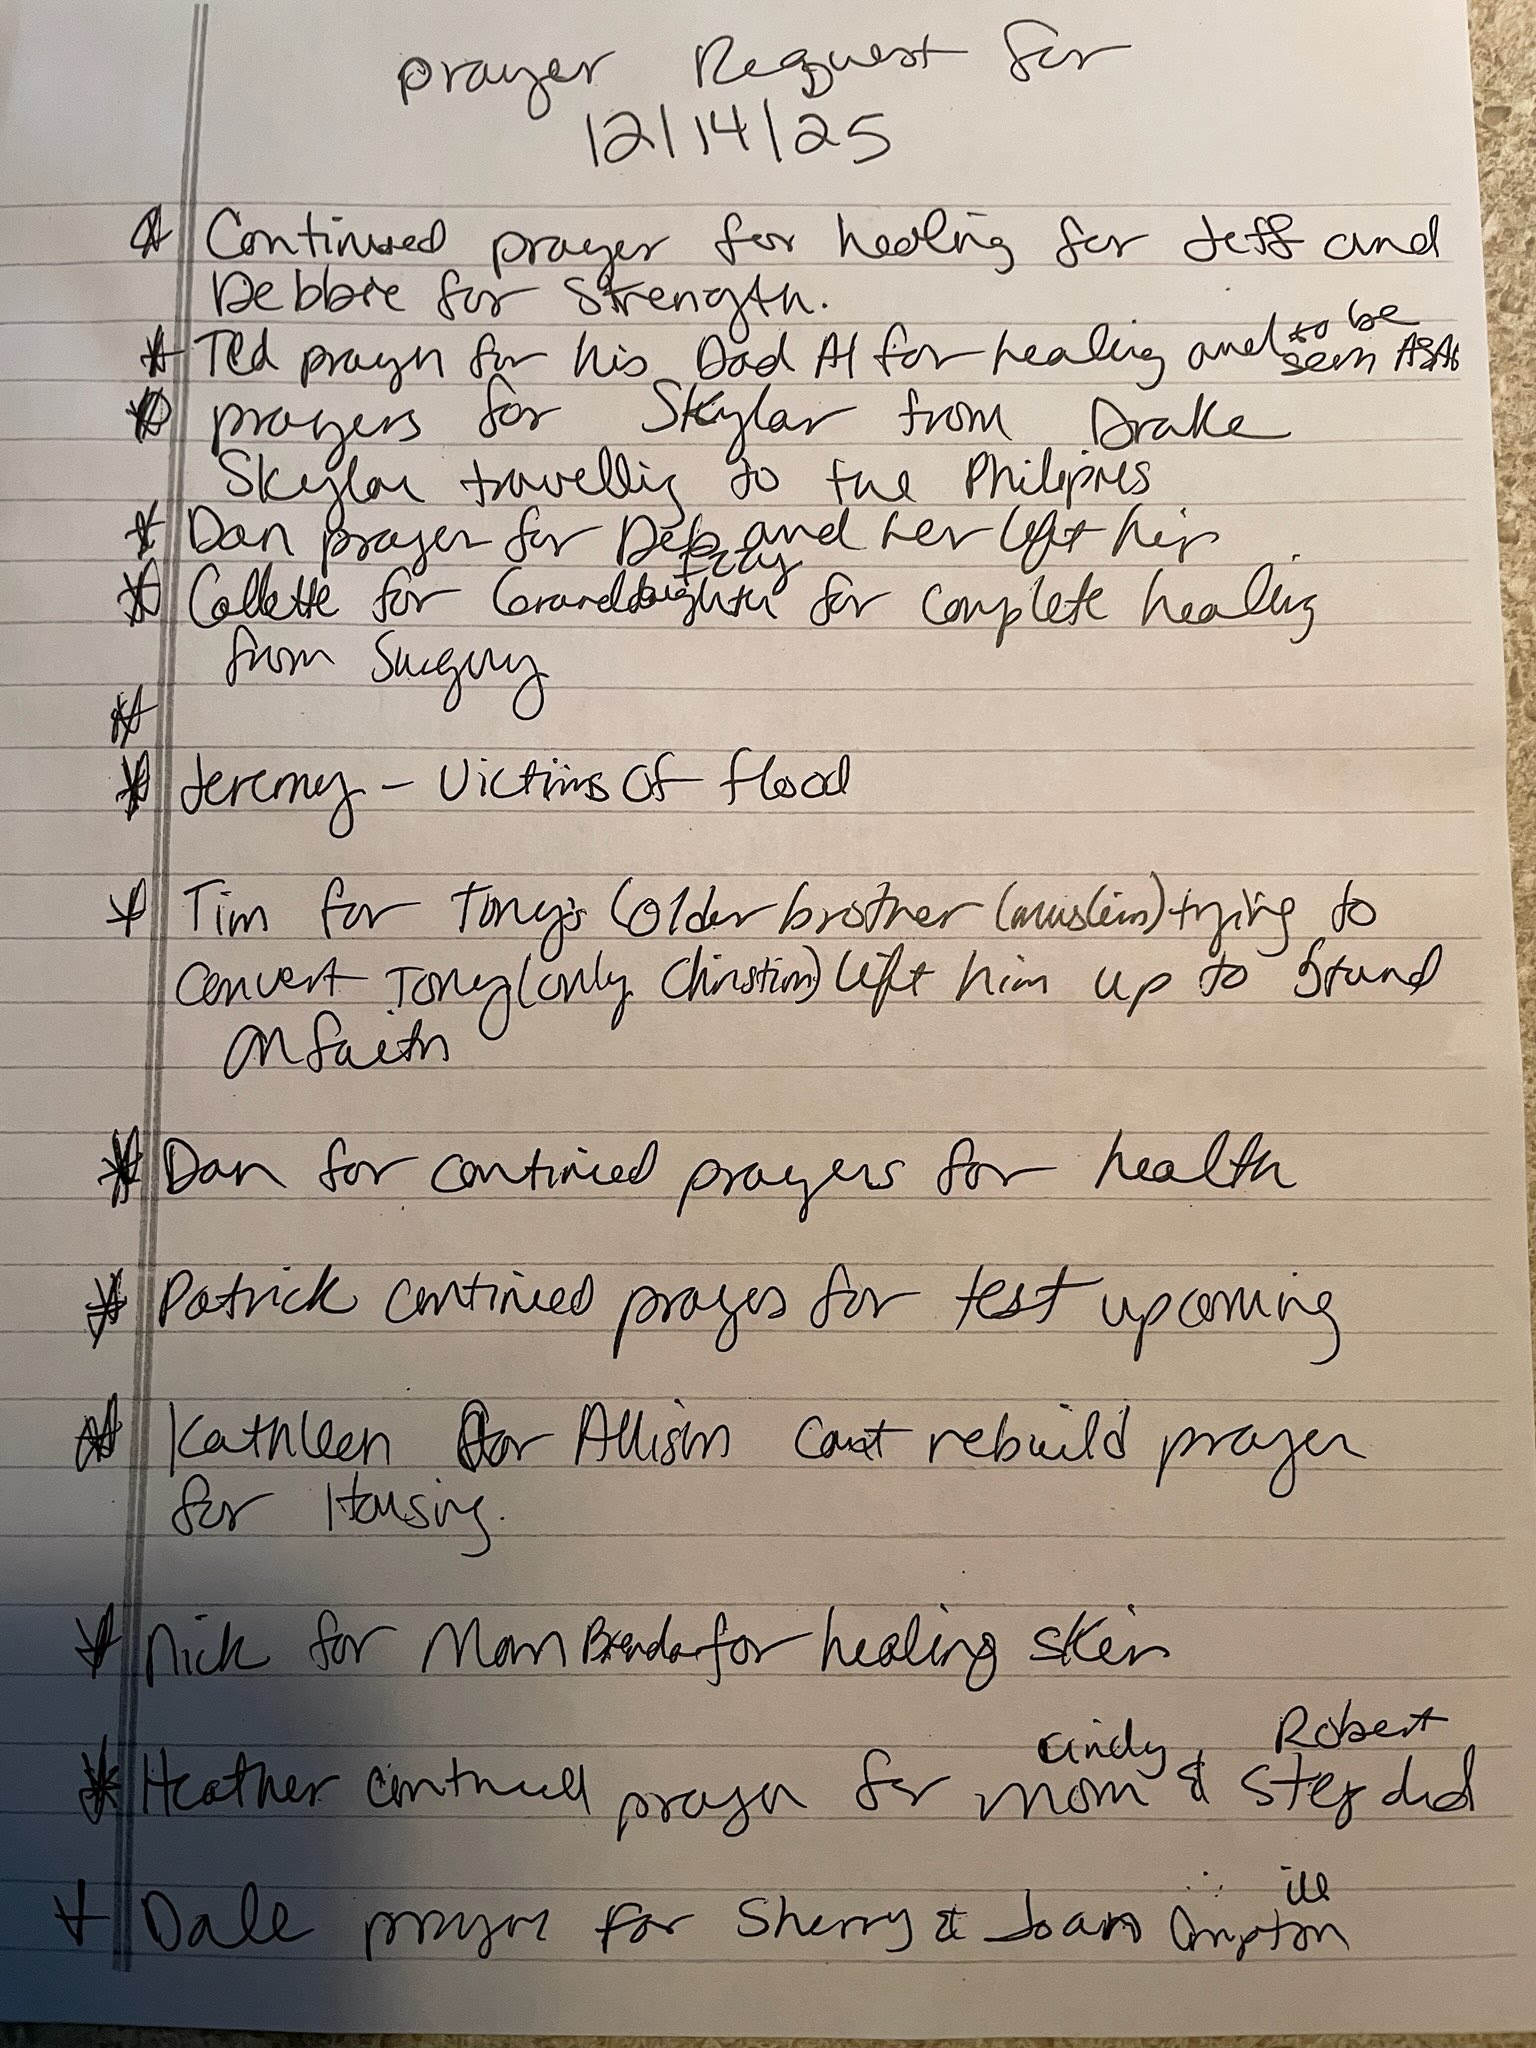 prayer Request for
12/14/25
* Continued prayer for healing for Jeff and
Debbie for Strength.
* Ted prayer for his Dad Al for healing and to be seen ASAP
* prayers for Skylar from Drake
Skylar travelling to the
* Dan prayer for Deb and her left hip
* Collette for Granddaughter for complete healing
from Surgery
*
* Jeremy - Victims of flood
* Tim for Tony's (older brother (muslim) trying to
convert Tony (only Christian) lift him up to stand
on faith
* Dan for continued prayers for health
* Patrick continued prayers for test upcoming
* Kathleen for Allison cant rebuild prayer
for Housing.
* Nick for Mom Brenda for healing skin
* Heather continued prayer for mom Cindy & Step dad Robert
* Dale prayer for Sherry & Joann Compton ill